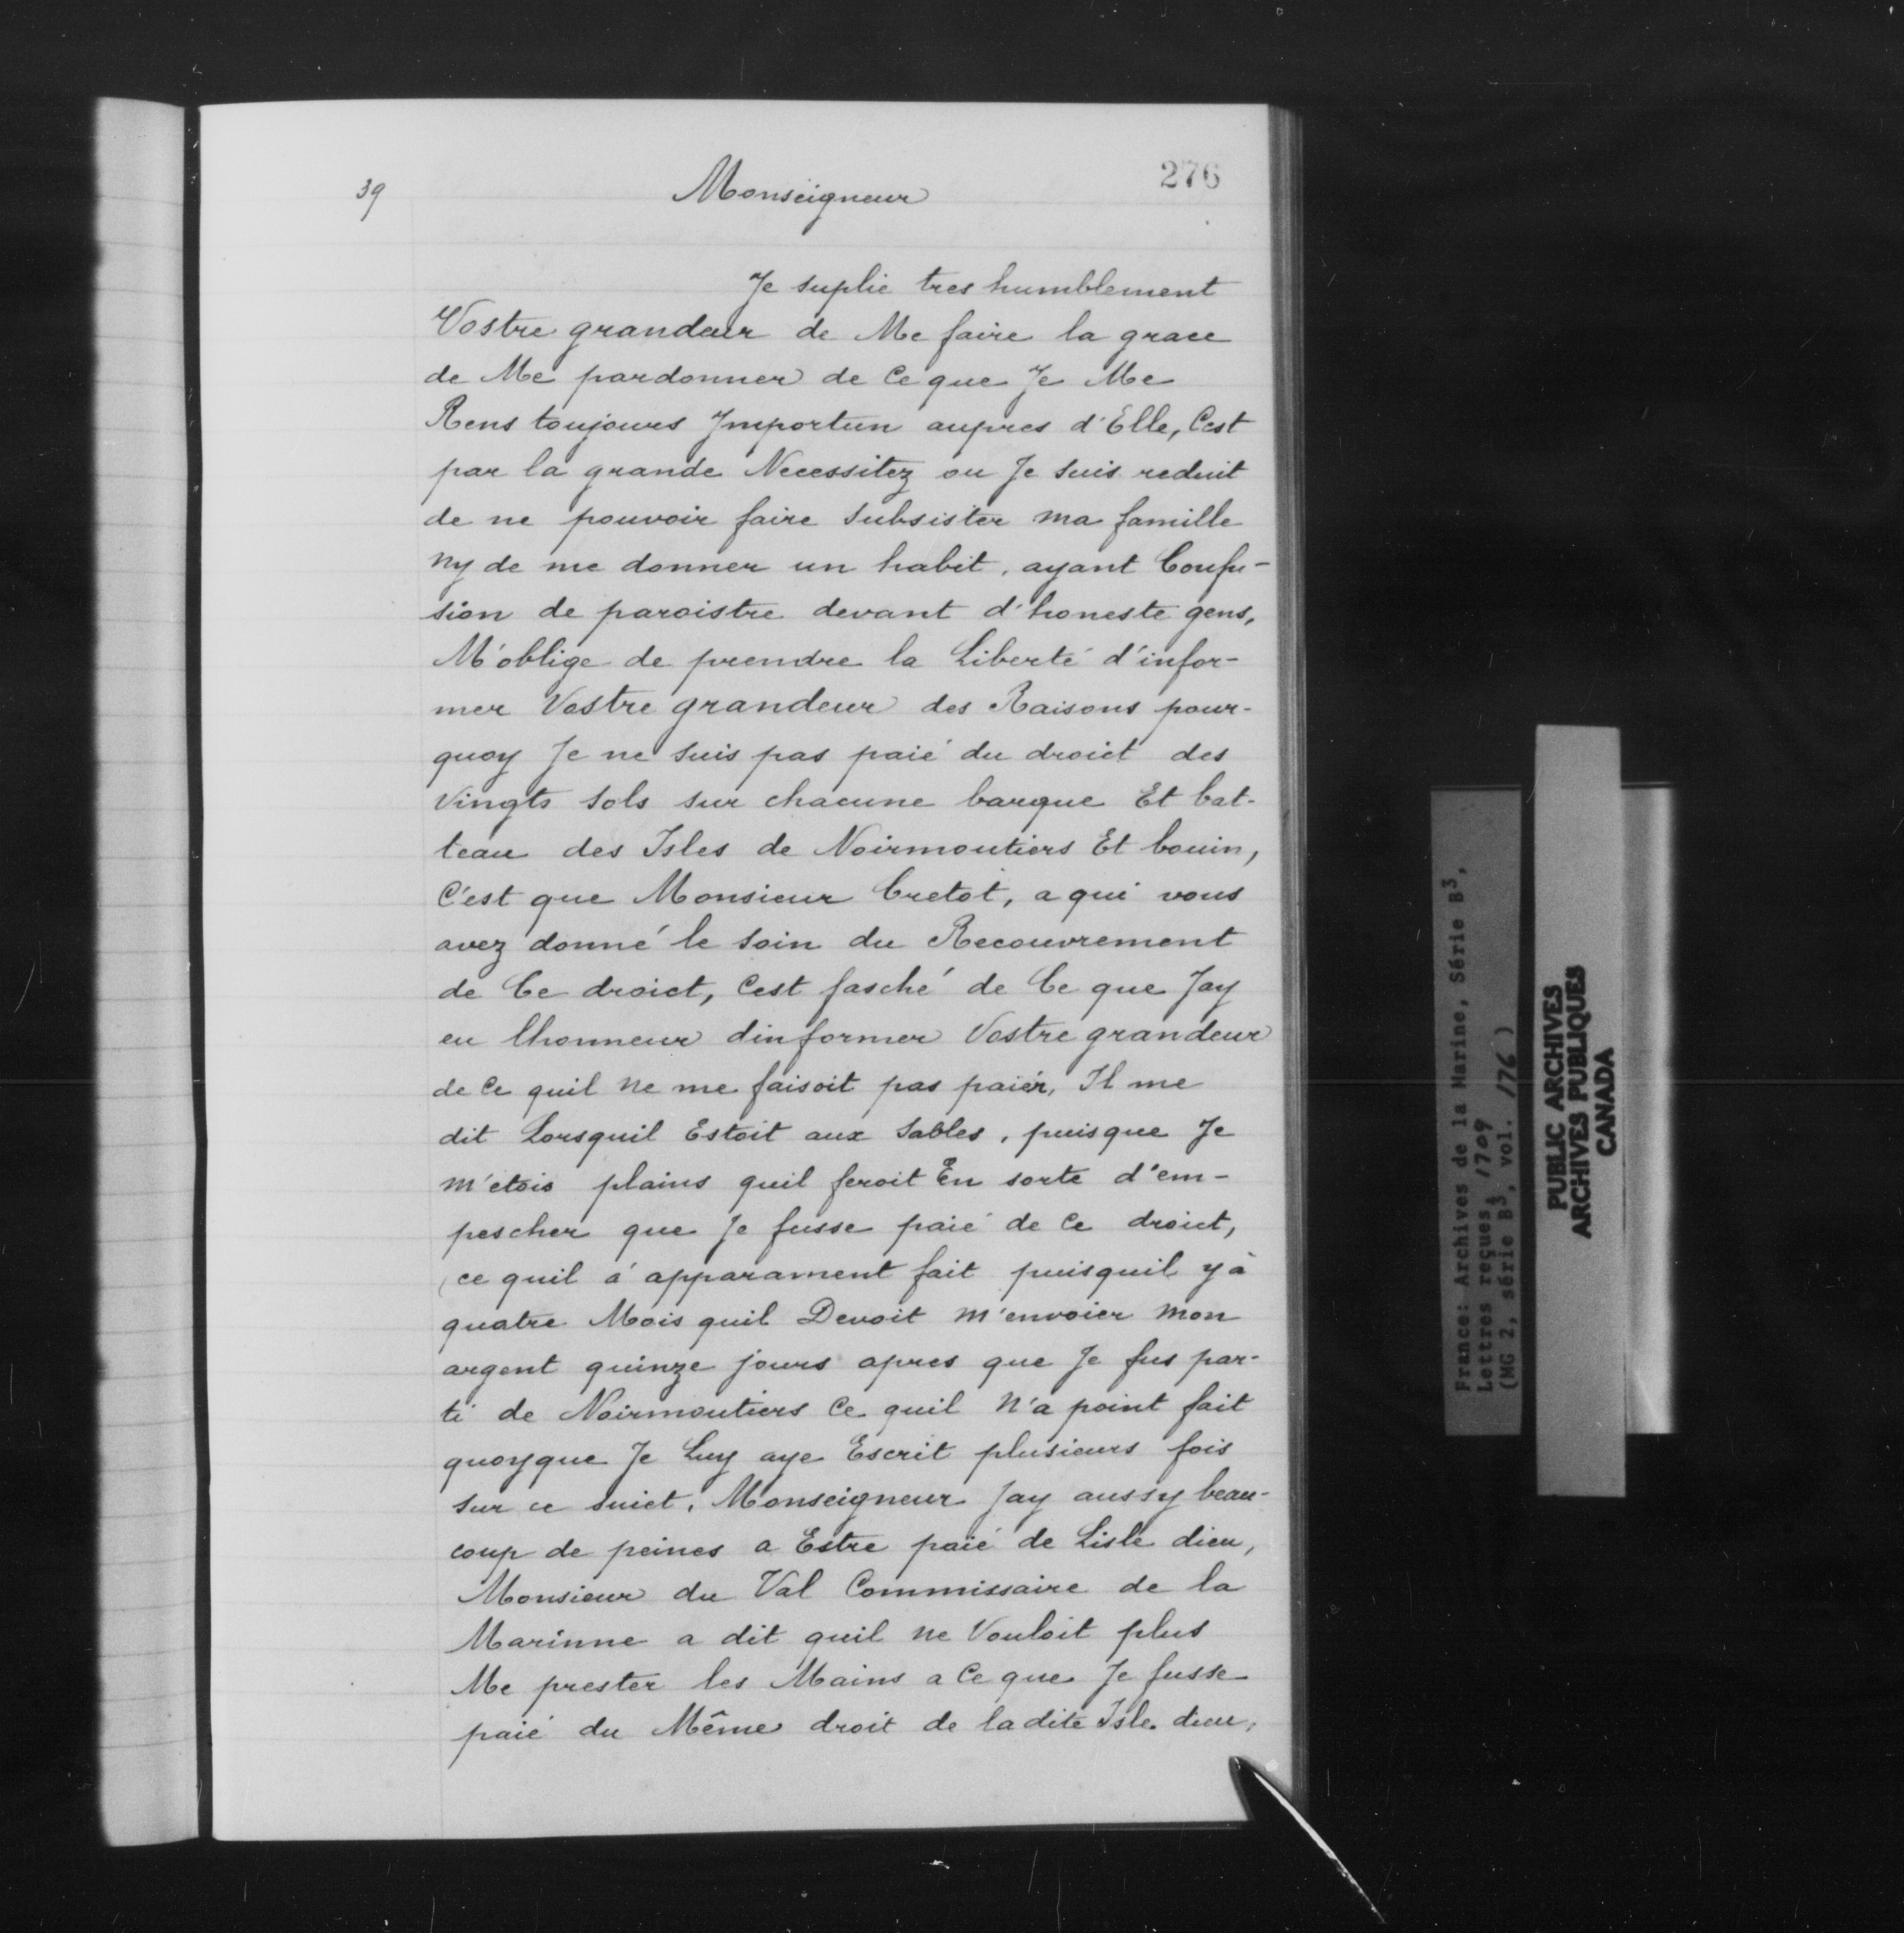 276
39
Monseigneur
Je suplie tres humblement
Vostre grandeur de Me faire la grace
de Me pardonner de Ce que Je Me
Rens toujours Importun aupres d'Elle, Cest
par la grande Necessitez ou Je suis reduit
de ne pouvoir faire subsister ma famille
ny de me donner un habit, ayant Confu-
sion de paroistre devant d'honeste gens,
M'oblige de prendre la Liberté d'infor-
mer Vostre grandeur des Raisons pour-
quoy Je ne suis pas paié du droict des
vingts sols sur chacune barque Et bat-
teau des Isles de Noirmoutiers Et bouin,
C'est que Monsieur Cretot, a qui vous
avez donné le soin du Recouvrement
de Ce droict, Cest fasché de Ce que Jay
eu lhonneur dinformer Vostre grandeur
de Ce quil ne me faisoit pas paiér, Il me
dit Lorsquil Estoit aux sables, puisque Je
m'étois plains quil feroit En sorte d'em-
pescher que Je fusse paié de Ce droict,
ce quil á apparament fait puisquil y à
quatre Mois quil Devoit m'envoier mon
argent quinze jours apres que Je fus par-
ti de Noirmoutiers Ce quil N'a point fait
quoyque Je Luy aye Escrit plusieurs fois
sur ce suiet. Monseigneur Jay aussy beau-
coup de peines a Estre paié de Lisle dieu,
Monsieur du Val Commissaire de la
Marinne a dit quil ne Vouloit plus
Me prester les Mains a Ce que Je fusse
paié du Même droit de ladite Isle dieu,
France: Archives de la Marine, Série B3,
Lettres reçues, 1709
(MG 2, série B3, vol. 176 )
PUBLIC ARCHIVES
ARCHIVES PUBLIQUES
CANADA